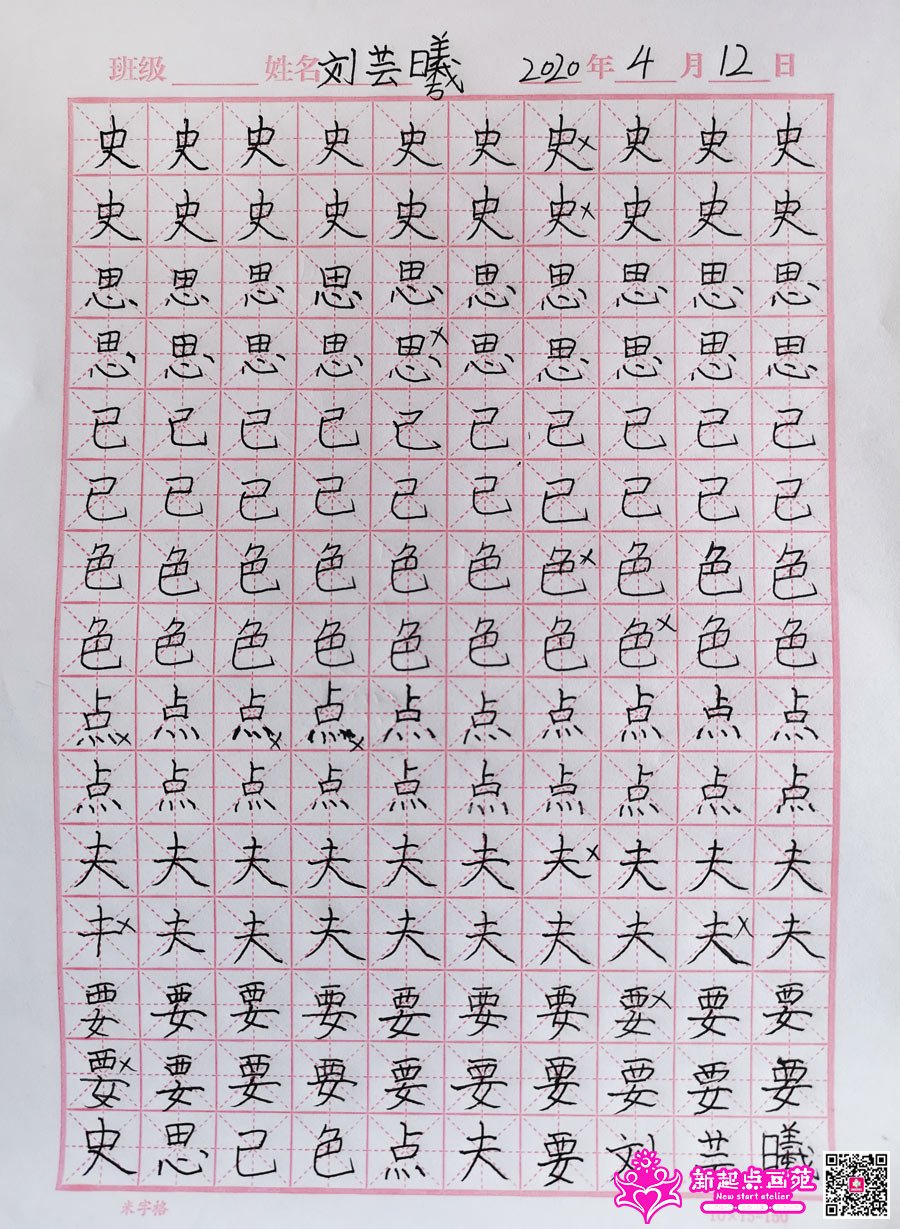 班级 姓名 刘芸曦 2020年4月12日
史史史史史史史×史史史
史史史史史史史×史史史
思思思思思思思思思思
思思思思思×思思思思思
己己己己己己己己己己
己己己己己己己己己己
色色色色色色色×色色色
色色色色色色色色×色色
点×点点×点×点点点点点点
点点点点点点点点点点
夫夫夫夫夫夫夫×夫夫夫
×夫夫夫夫夫夫夫夫×夫
要要要要要要要要×要要
要×要要要要要要要要要
史思己色点夫要刘芸曦
新起点画苑
New start atelier
米字格